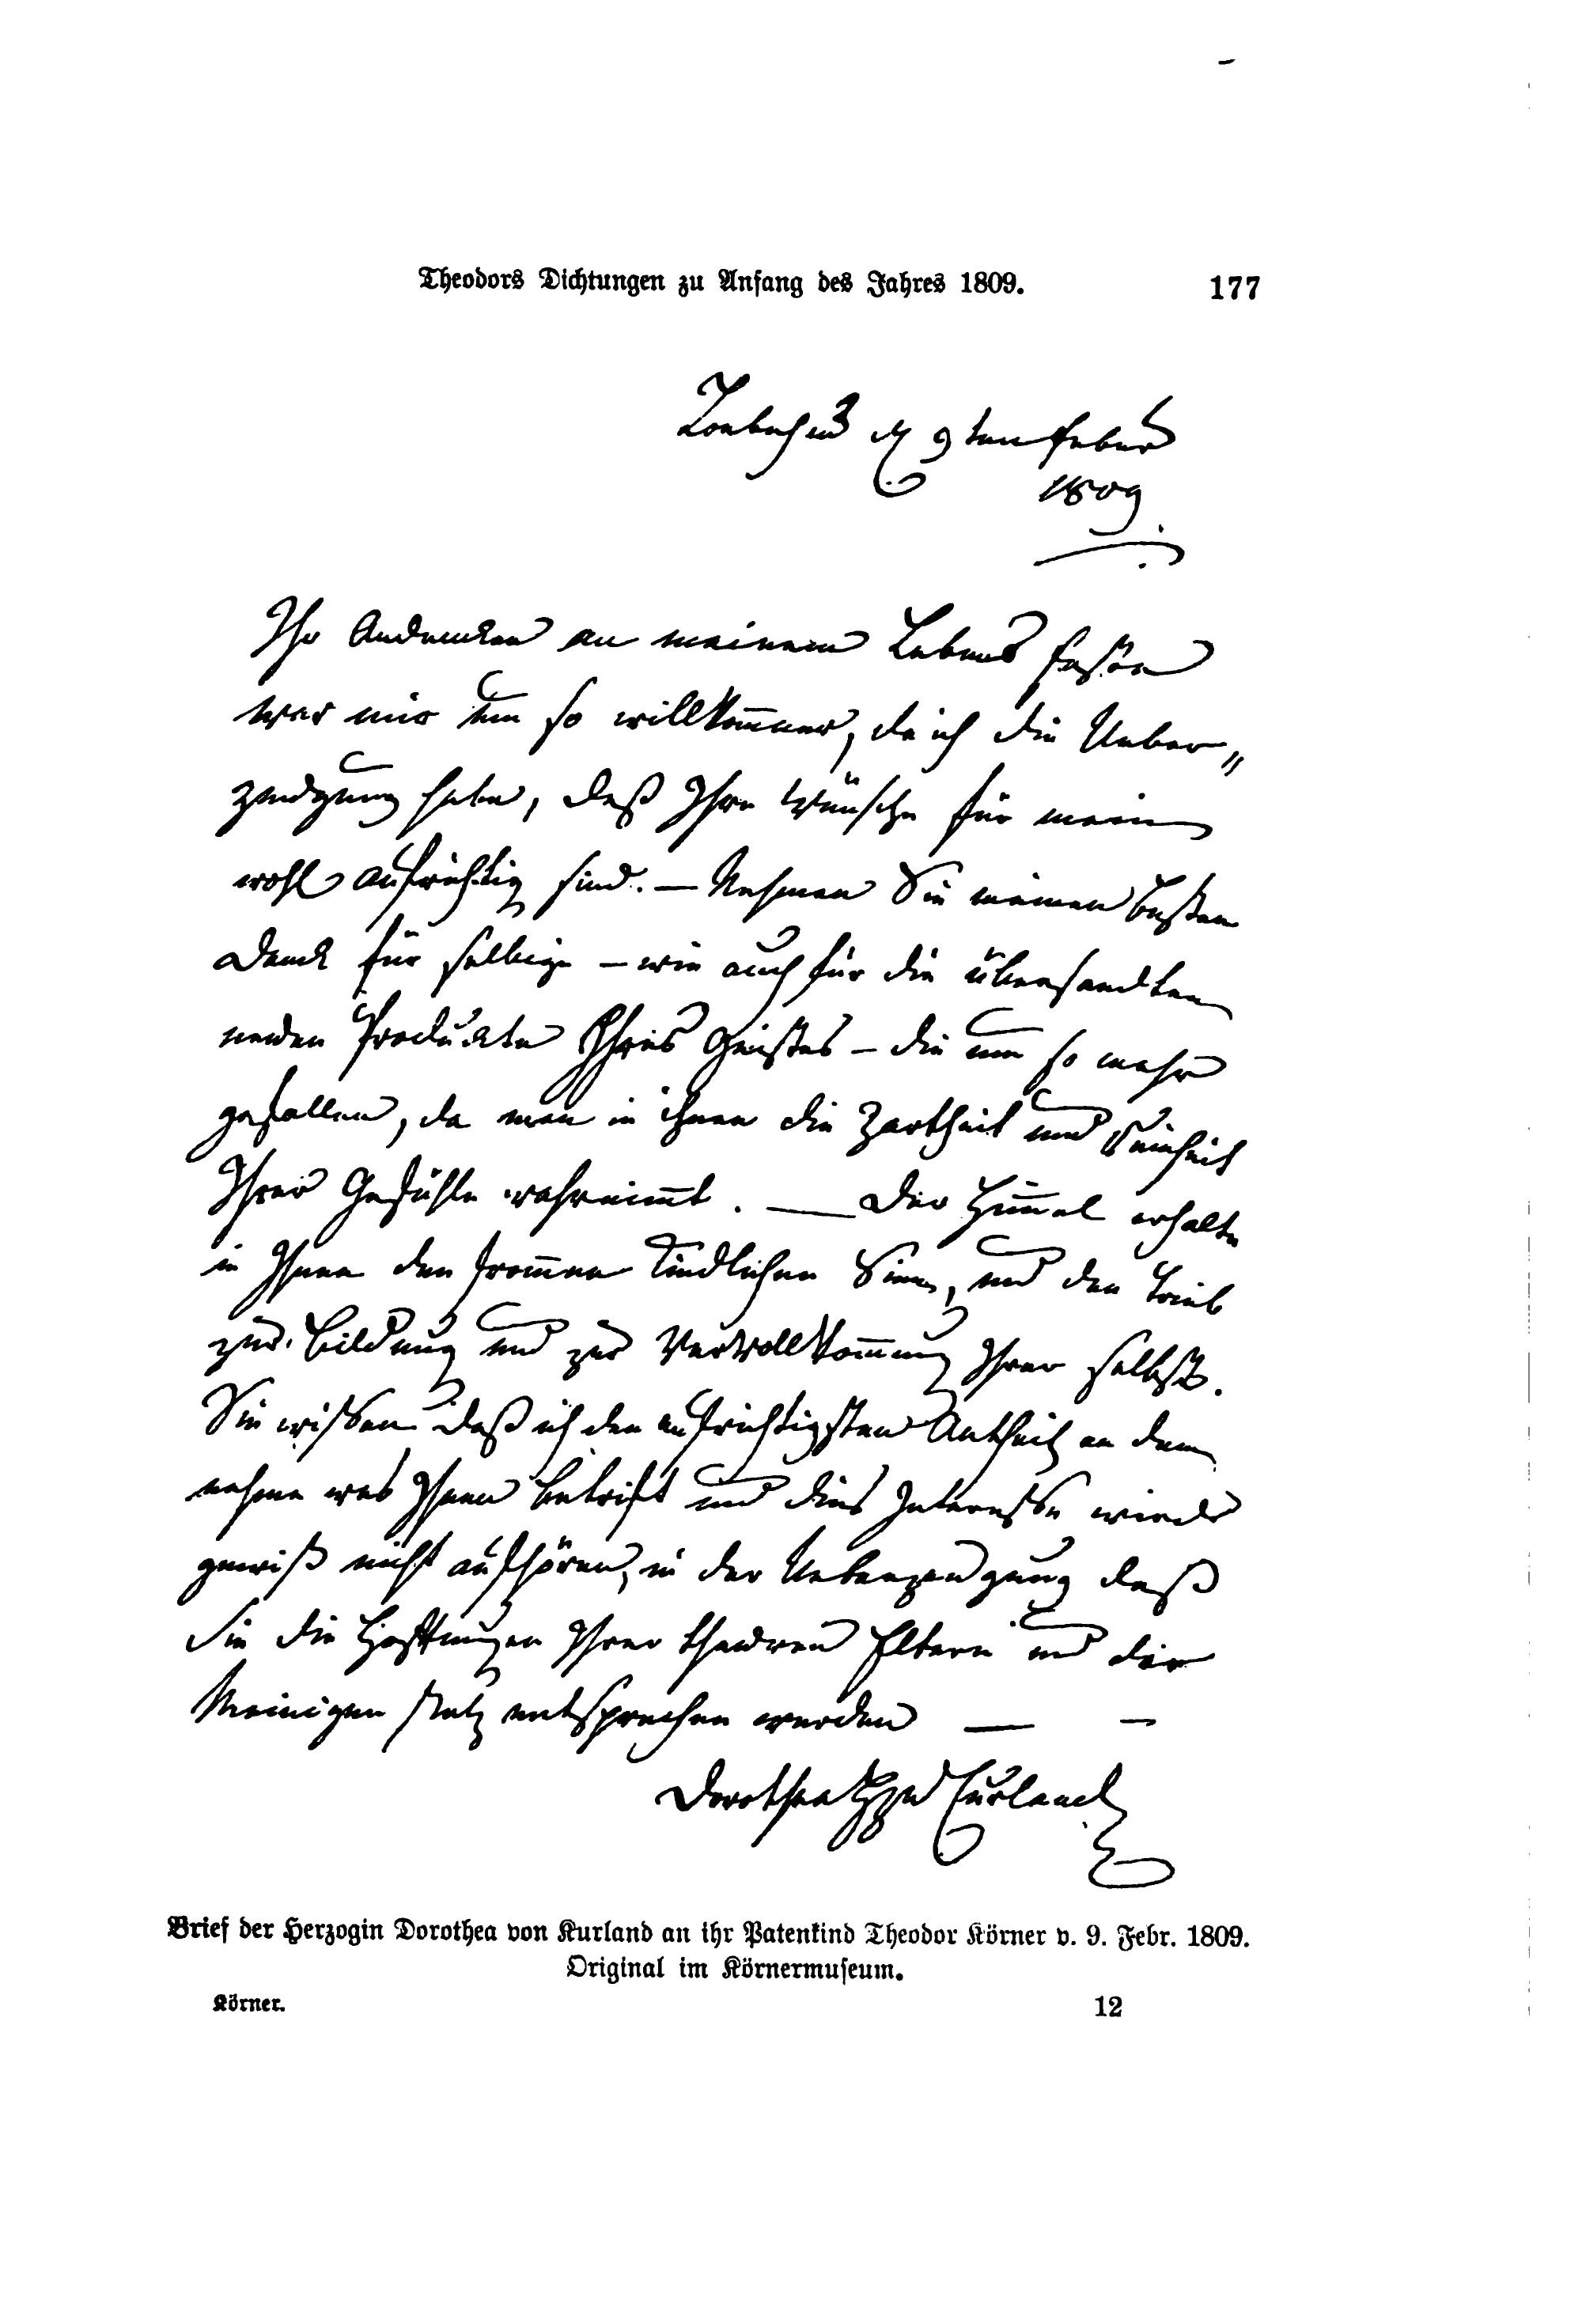 Theodors Dichtungen zu Anfang des Jahres 1809. 177
Loebichau d 9ten Feber
1809
Ihr Andencken an meinem Lebens Feste
war mir um so willkom̅ner, da ich die Ueber„
zeugung habe, daß Ihre Wünsche für mein
wohl aufrichtig sind. — Nehmen Sie meinen besten
Danck für selbige – wie auch für die übersandten
neuen Produckte Ihres Geistes – die um so mehr
gefallen, da man in ihnen die Zartheit und Feinheit
Ihrer Gefühle wahrnim̅t. — Der Him̅el erhalte
in Ihnen den from̅en kindlichen Sinn, und den Trieb
zur Bildung und zur Vervollkom̅nung Ihrer selbst.
Sie wissen daß ich den aufrichtigsten Antheil an dem
nehme was Ihnen betrift und dies Interesse wird
gewiß nicht aufhören, in der Ueberzeugung daß
Sie die Hoffnungen Ihrer theuren Eltern und die
Meinigen stets entsprechen werden — –
Dorothea Curland
Brief der Herzogin Dorothea von Kurland an ihr Patenkind Theodor Körner v. 9. Febr. 1809.
Original im Körnermuseum.
Körner. 12